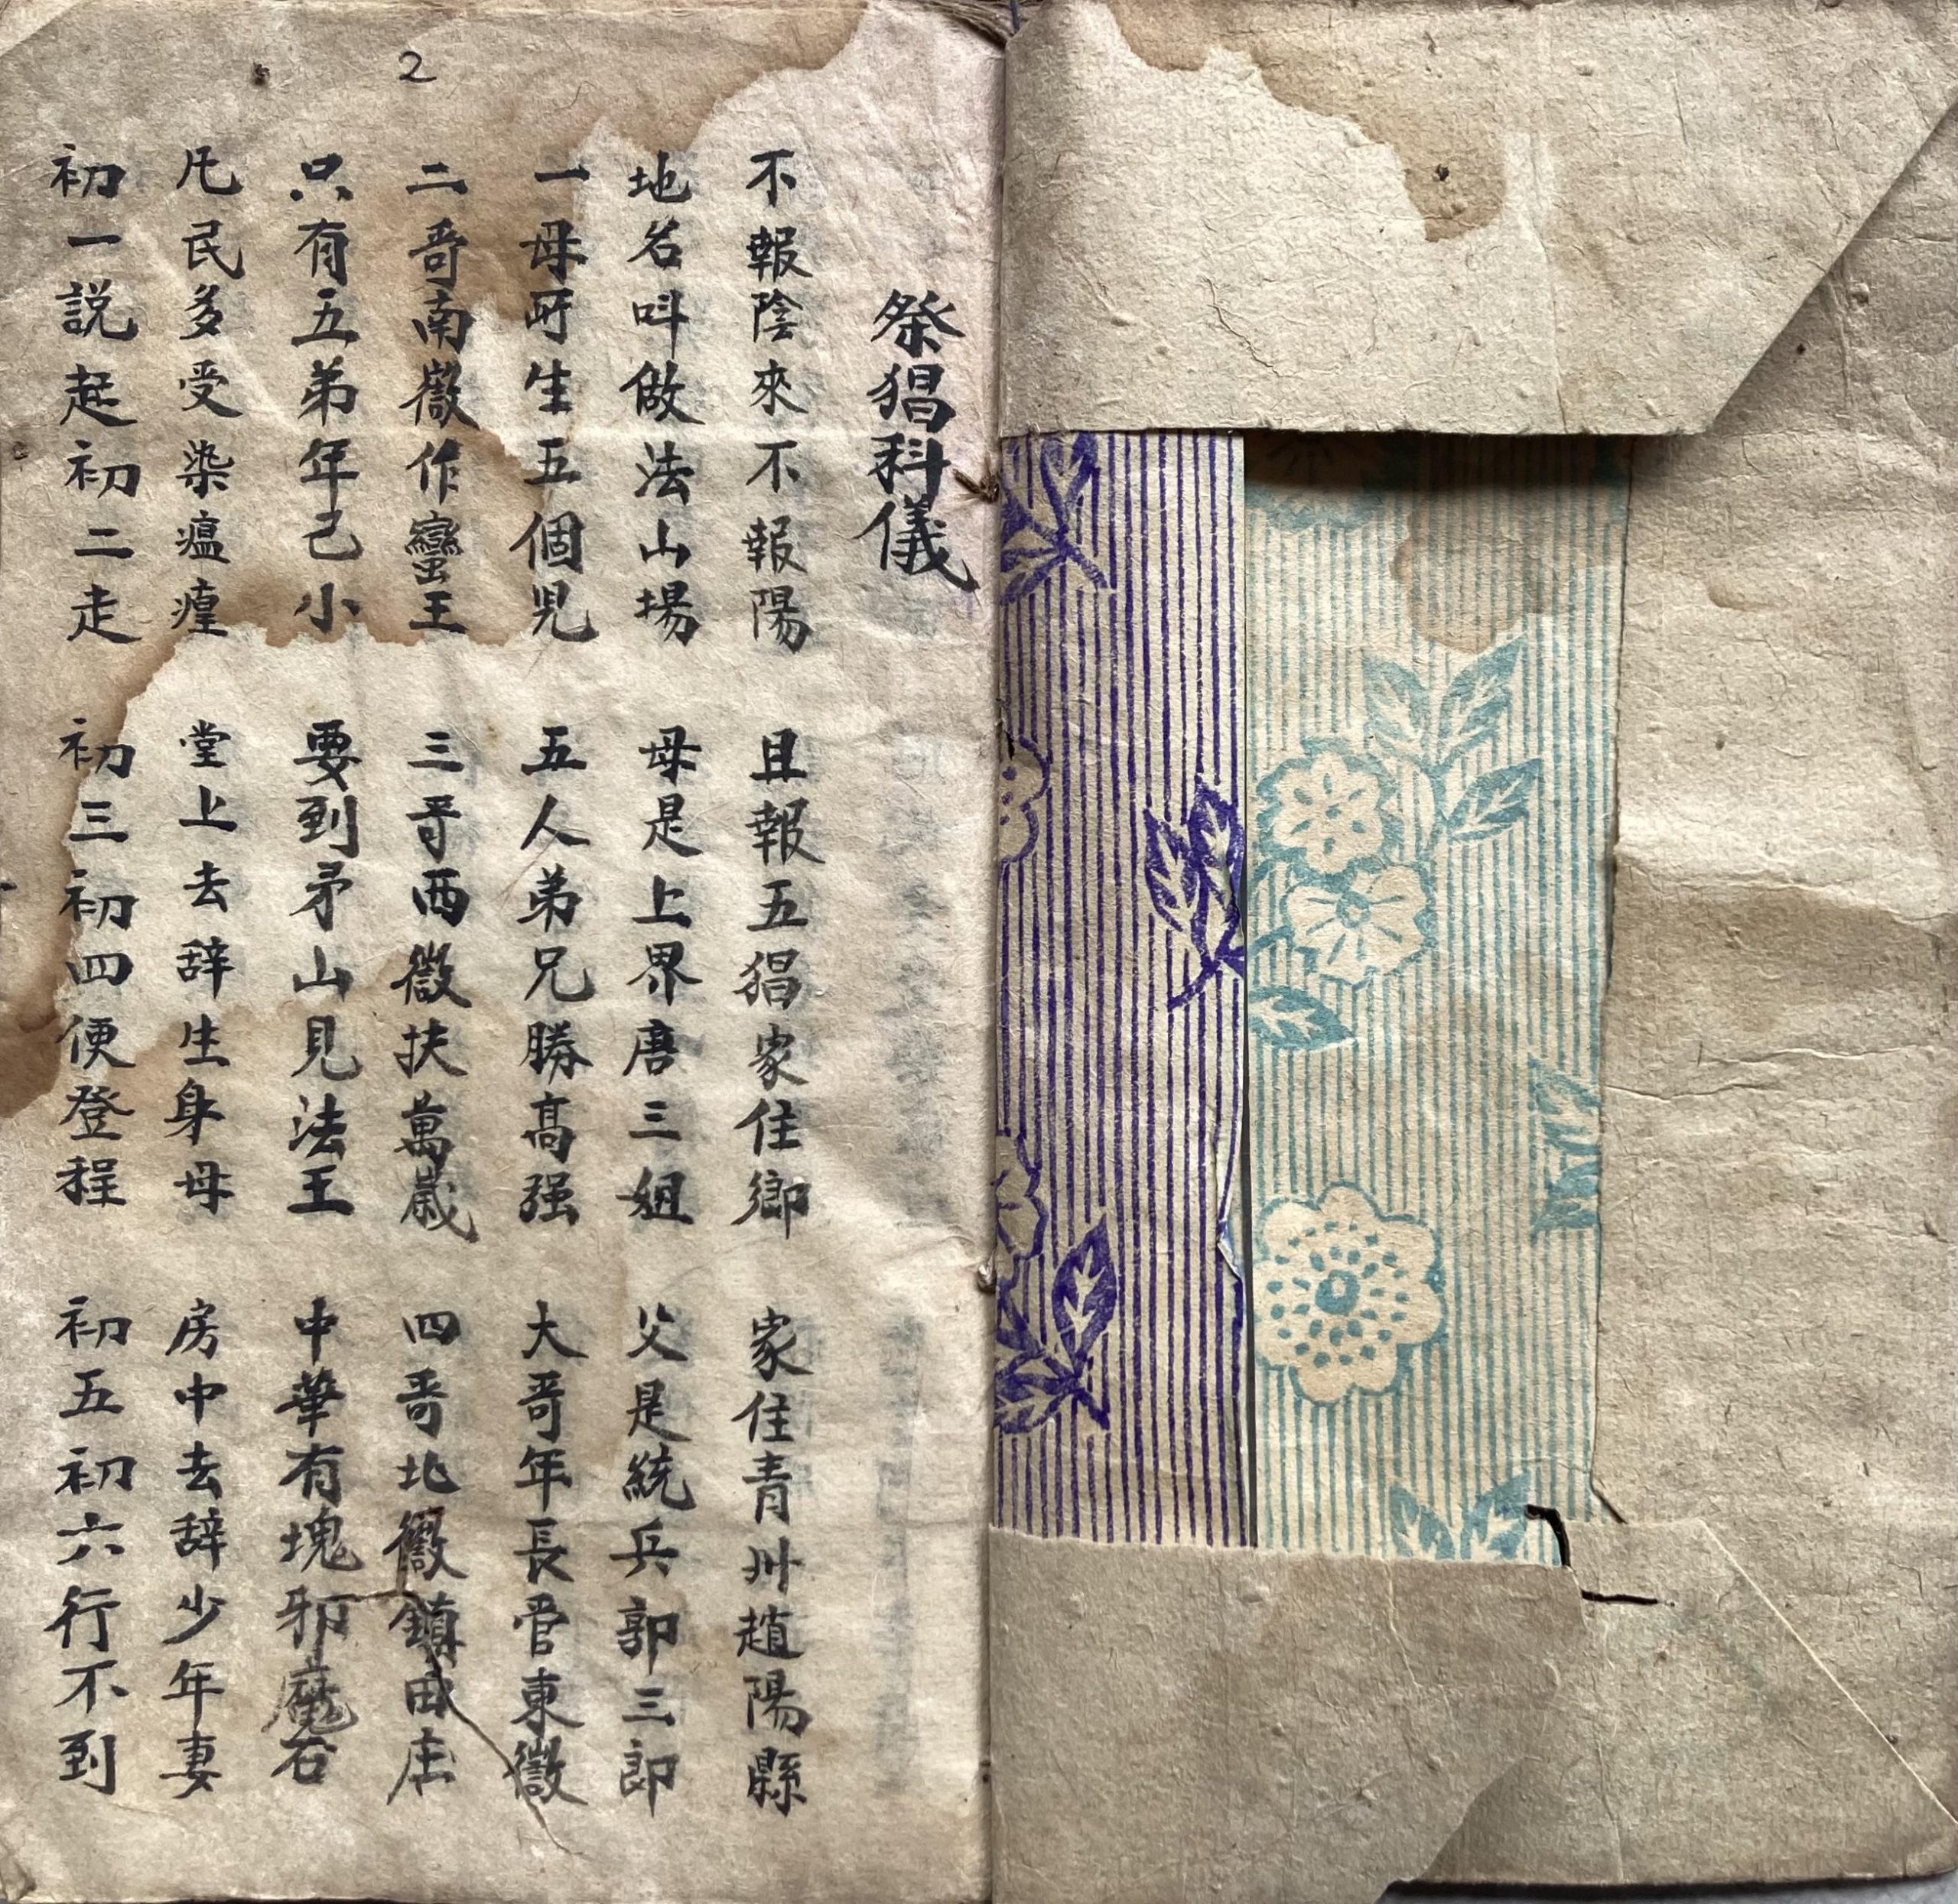 2
祭猖科儀
不報陰來不報陽 且報五猖家住鄉 家住青州趙陽縣
地名呌做法山場 母是上界唐三姐 父是統兵郭三郎
一母所生五個児 五人弟兄勝高强 大哥年長管東徵
二哥南徵作蠻王 三哥西徵扶萬歲 四哥北徵鎮
只有五弟年己小 要到矛山見法王 中華有塊邪魔石
凡民多受染瘟㾮 堂上去辞生身母 房中去辞少年妻
初一説起初二走 初三初四便登程 初五初六行不到